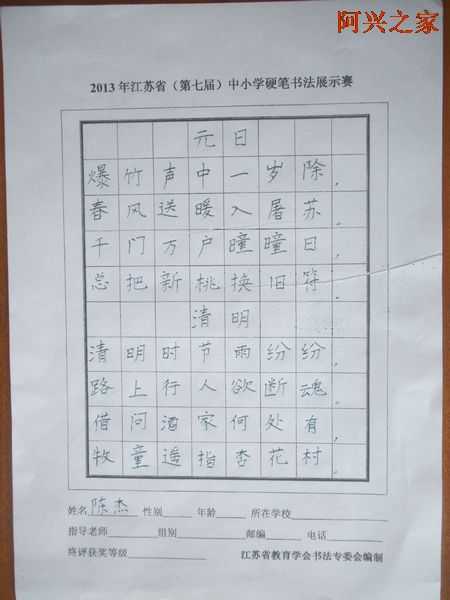 阿兴之家
2013年江苏省（第七届）中小学硬笔书法展示赛
元日
爆竹声中一岁除，
春风送暖入屠苏。
千门万户曈曈日，
总把新桃换旧符。
清明
清明时节雨纷纷，
路上行人欲断魂。
借问酒家何处有，
牧童遥指杏花村。
姓名 陈杰 性别 年龄 所在学校
指导老师 组别 邮编 电话
终评获奖等级 江苏省教育学会书法专委会编制